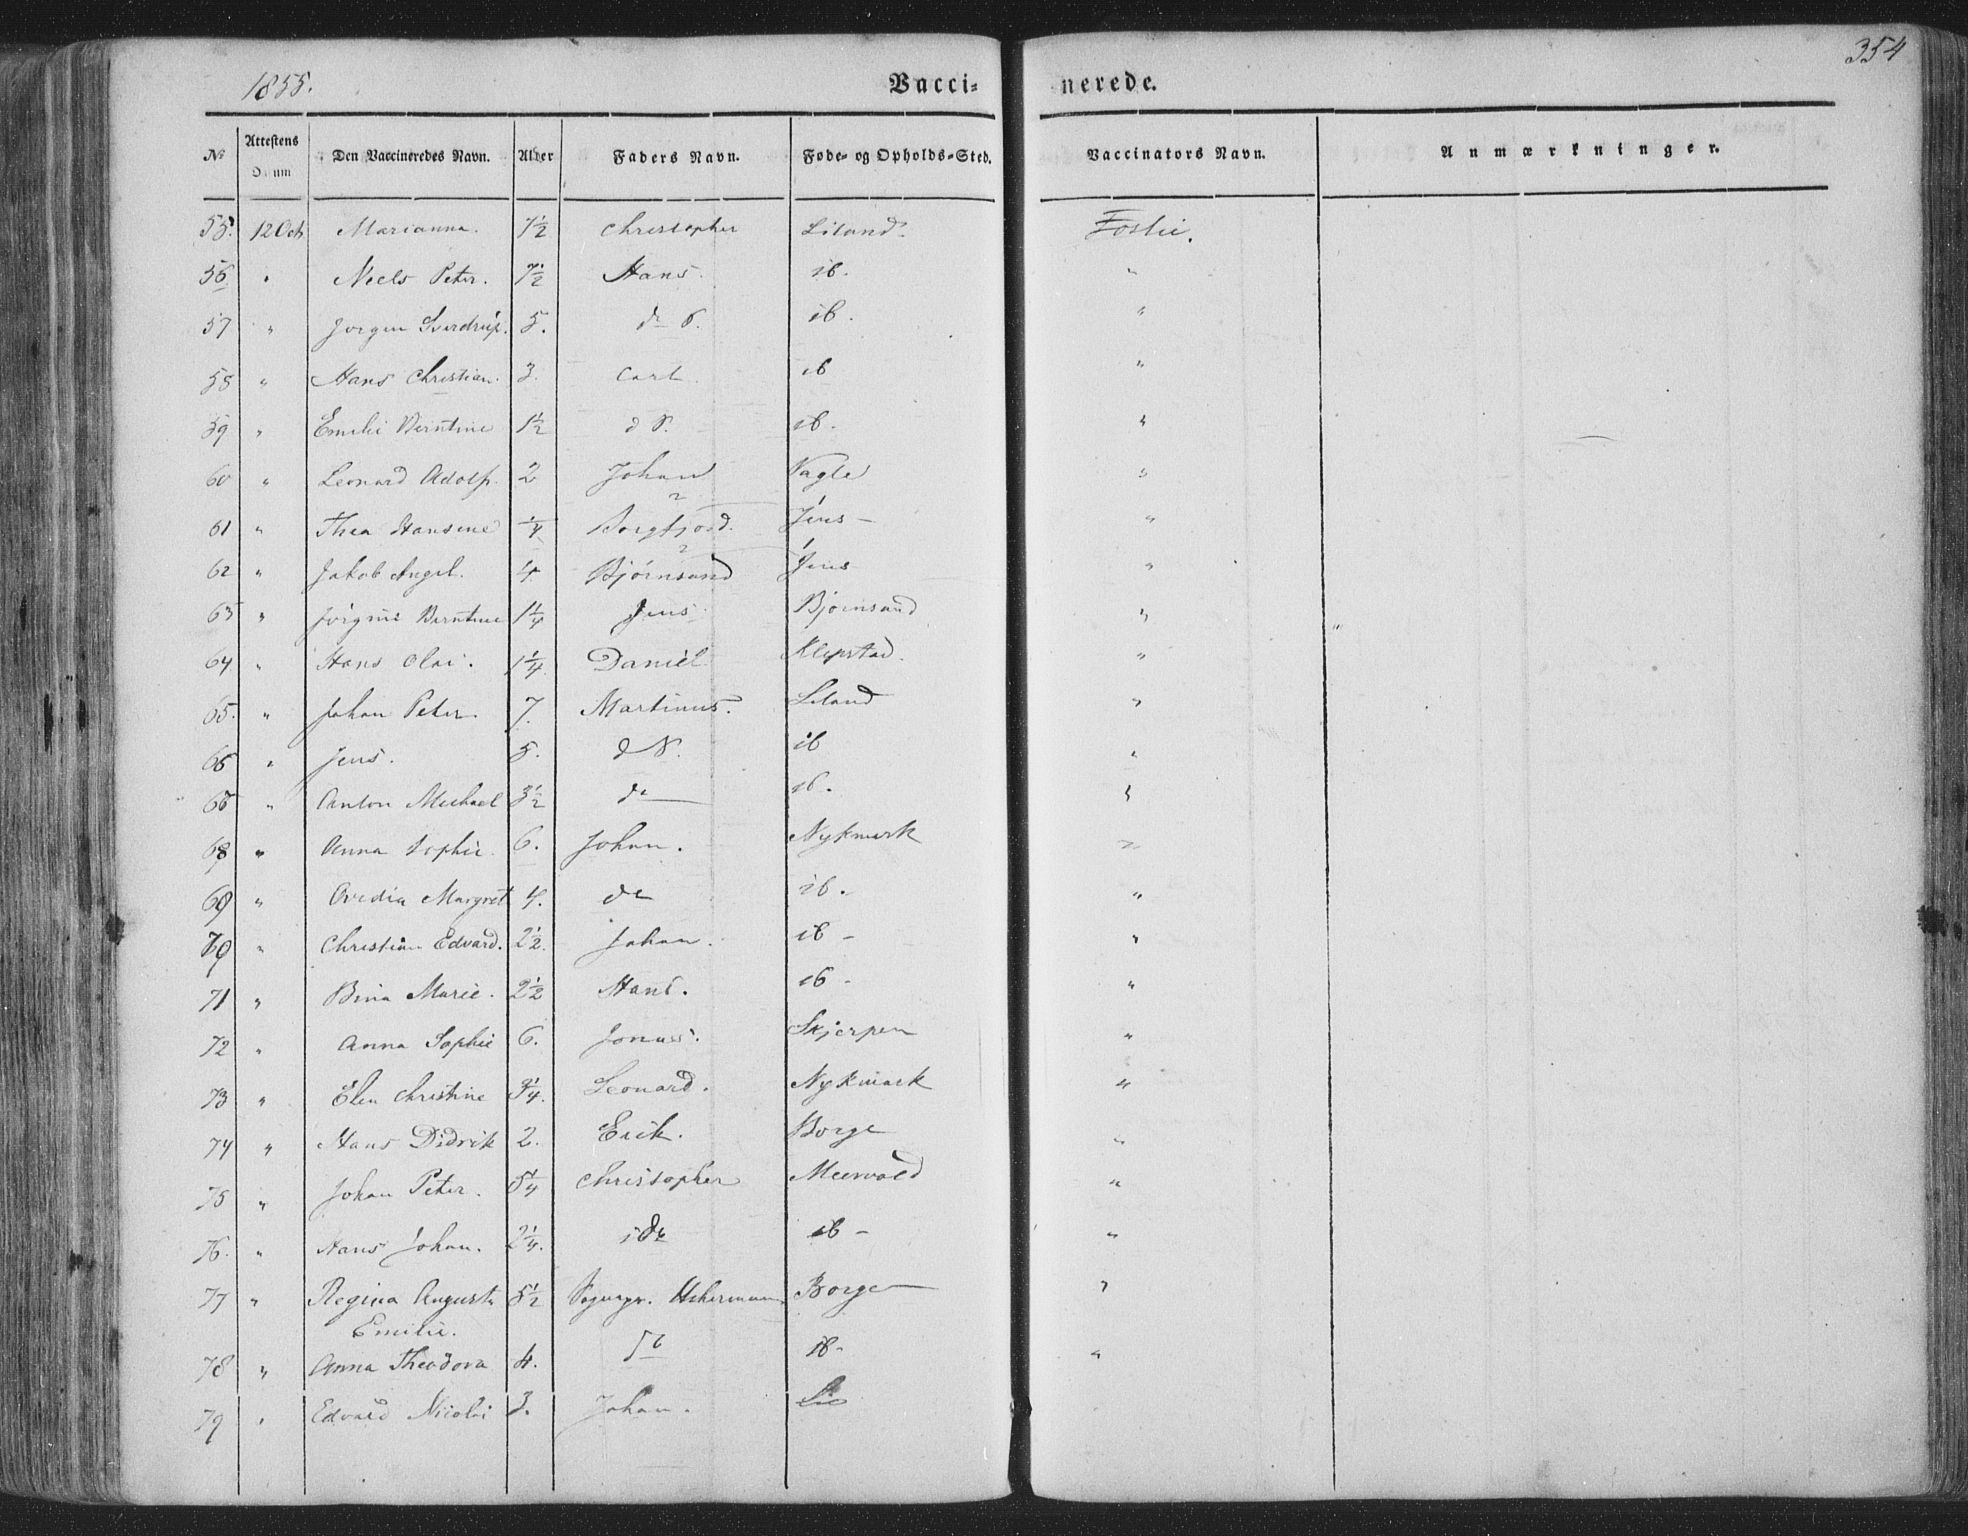 354
1855. Vacci- nerede.
No Attestens Datum Den Vaccineredes Navn. Alder Faders Navn. Føde- og Opholds-Sted. Vaccinators Navn. Anmærkninger.
55. 12 Oct Marianna. 7½ Christopher Liland. Foslie.
56 " Niels Peter. 7½ Hans. ib. "
57 " Jørgen Sverdrup. 5. do ib. "
58 " Hans Christian. 3. Carl ib "
59 " Emilie Berntine 1½ do. ib. "
60 " Leonard Adolf. 2 Johan Vagle "
61 " Thea Hansine ¼ Borgfjord. Jens - "
62 " Jakob Angel. 4. Bjørnsand Jens "
63 " Jørgine Berntine 1¼ Jens Bjørnsand "
64 " Hans Olai. 1¼ Daniel Klepstad. "
65. " Johan Peter. 7. Martinus. Liland "
66 " Jens. 5. do. ib "
67 " Anton Michael 3½ do ib. "
68 " Anna Sophie 6. Johan. Nykmark "
69 " Ovedia Margret 4. do ib. "
70 " Christian Edvard. 2½. Johan. ib - "
71 " Bina Marie. 2½ Hans. ib - "
72 " Anna Sophie 6. Jonas. Skjerpen "
73 " Elen Christine ¾. Leonard. Nykmark "
74 " Hans Didrik 2. Erik. Borge "
75 " Johan Peter. 5¼ Christopher Meervold "
76. " Hans Johan. 2¼. do ib - "
77 " Regina Augusta 5½ Sognepr. Borge "
Emilie.
78 " Anna Theodora 4. do ib. "
79 " Edvard Nicolai 3. Johan. Lie